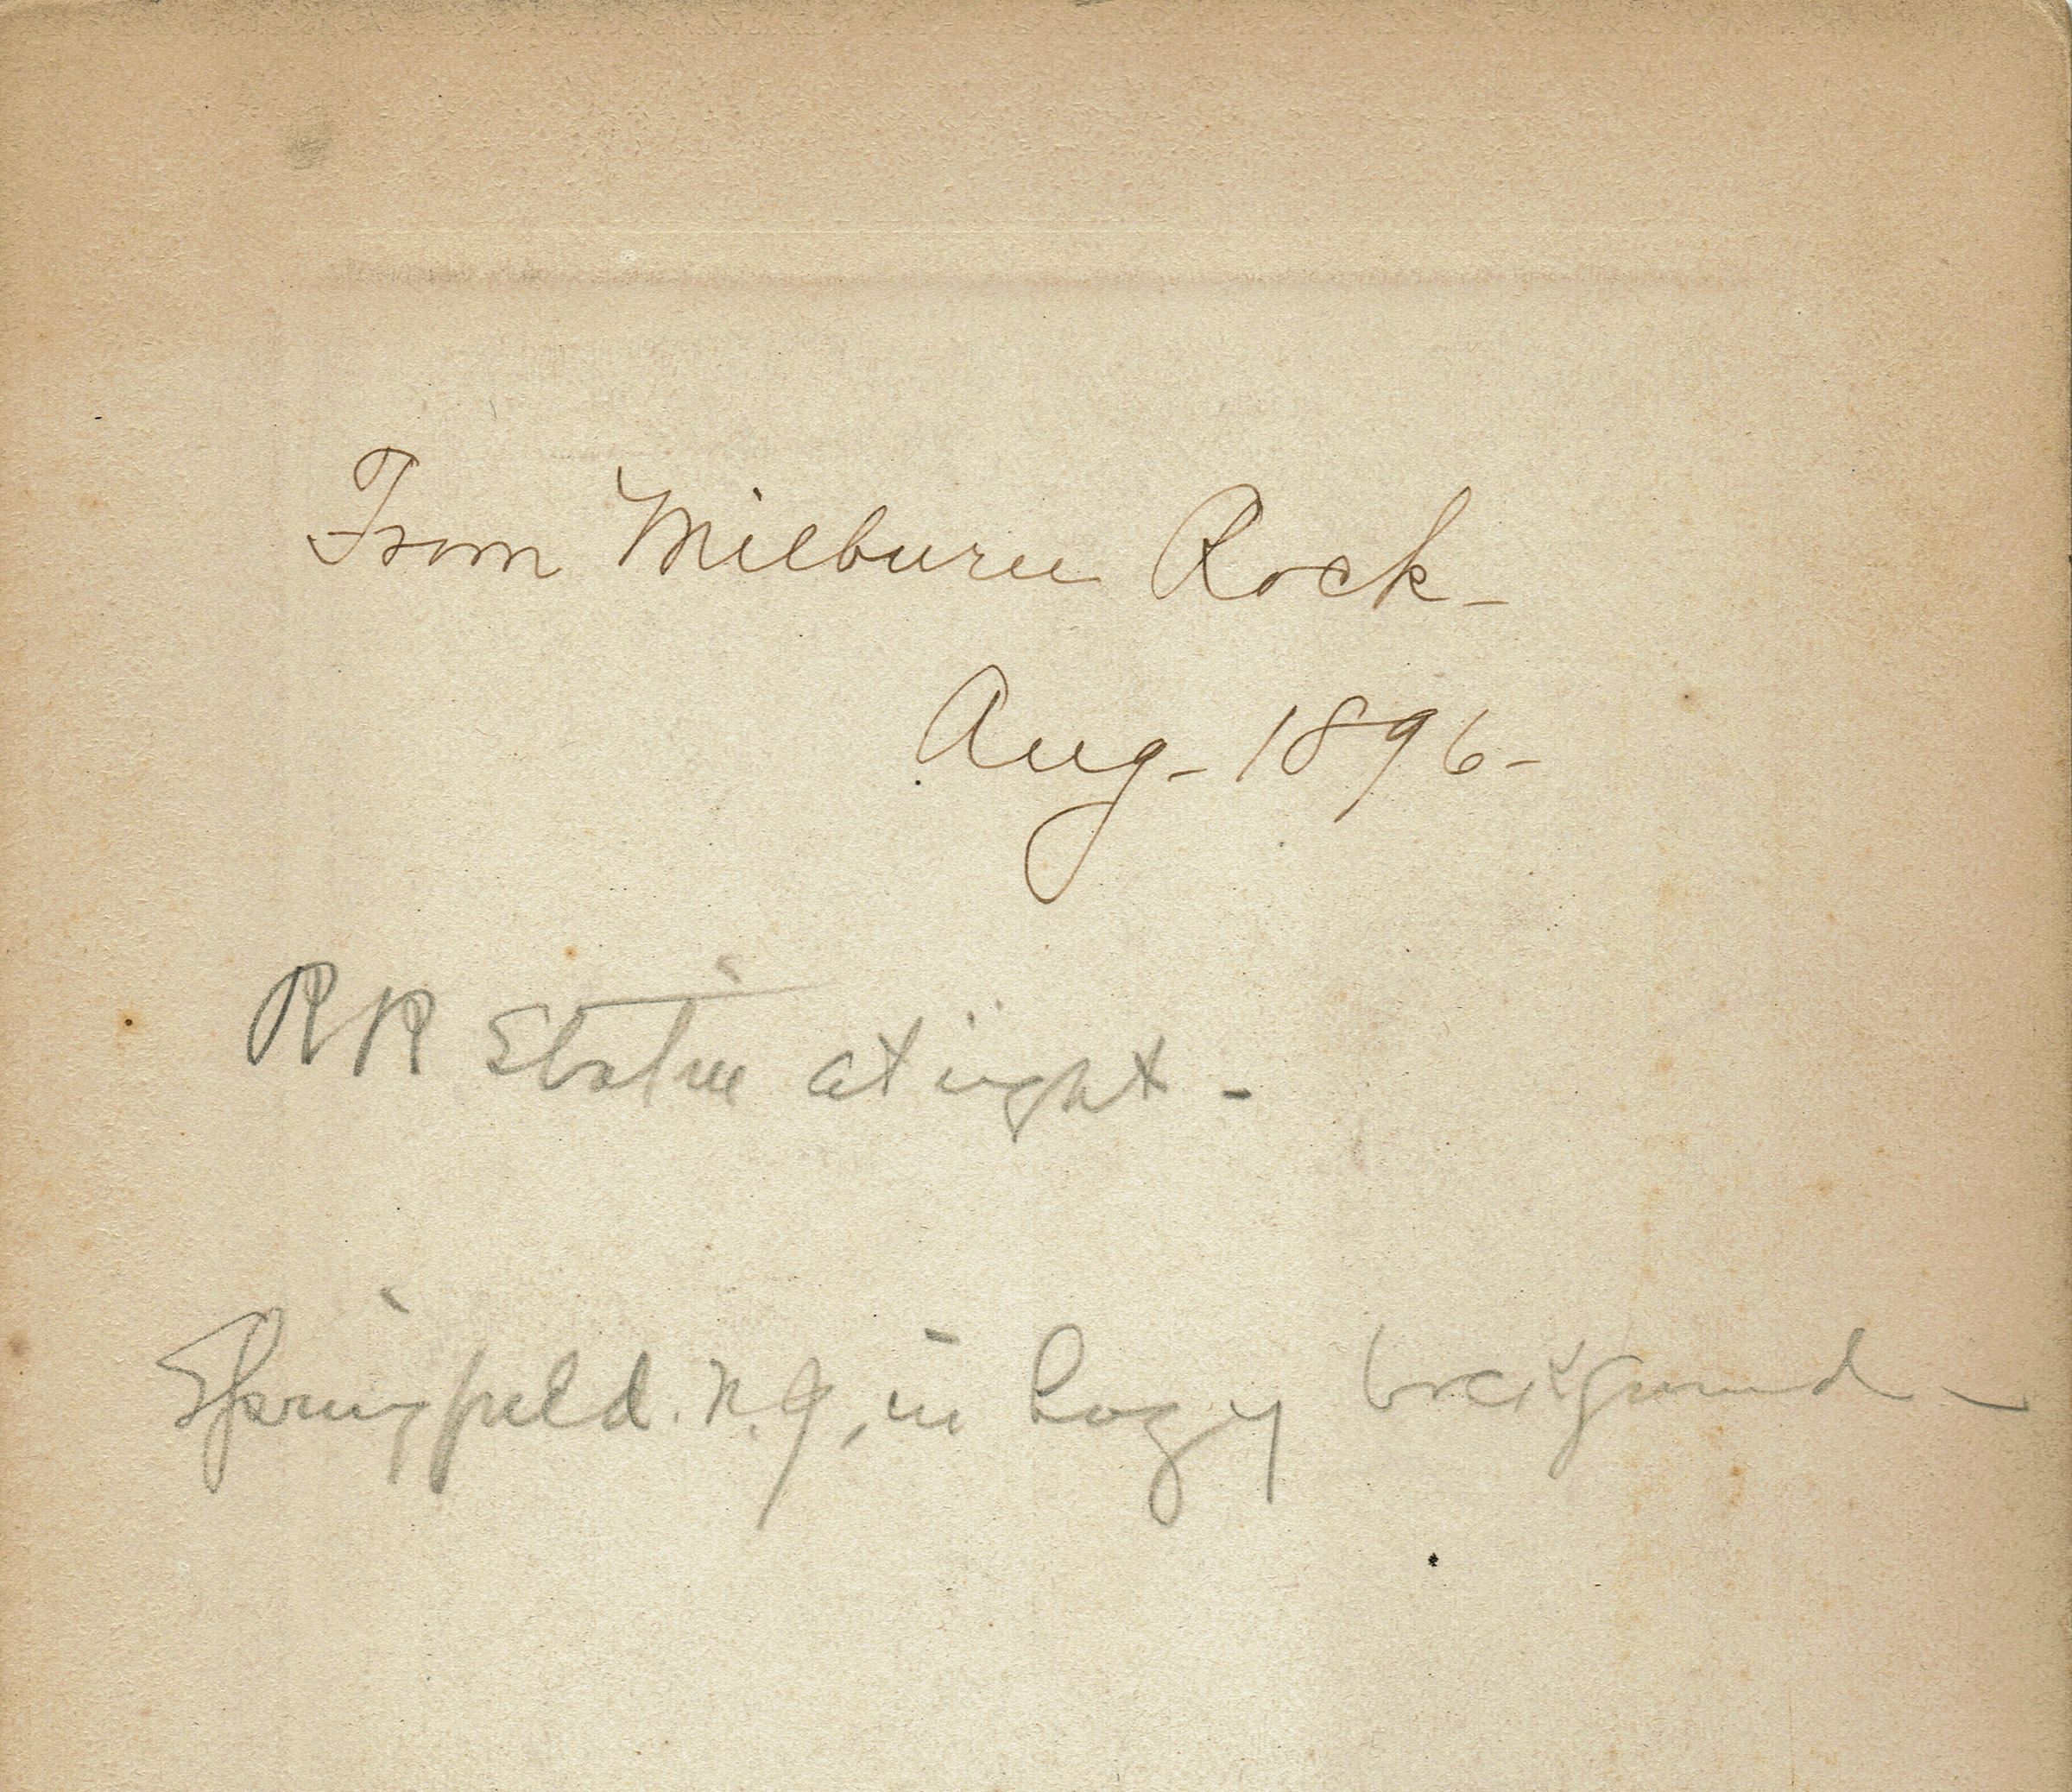 From Milburn Rock-
Aug- 1896-
RR Station at right -
Springfield. N.J, in hazy background -